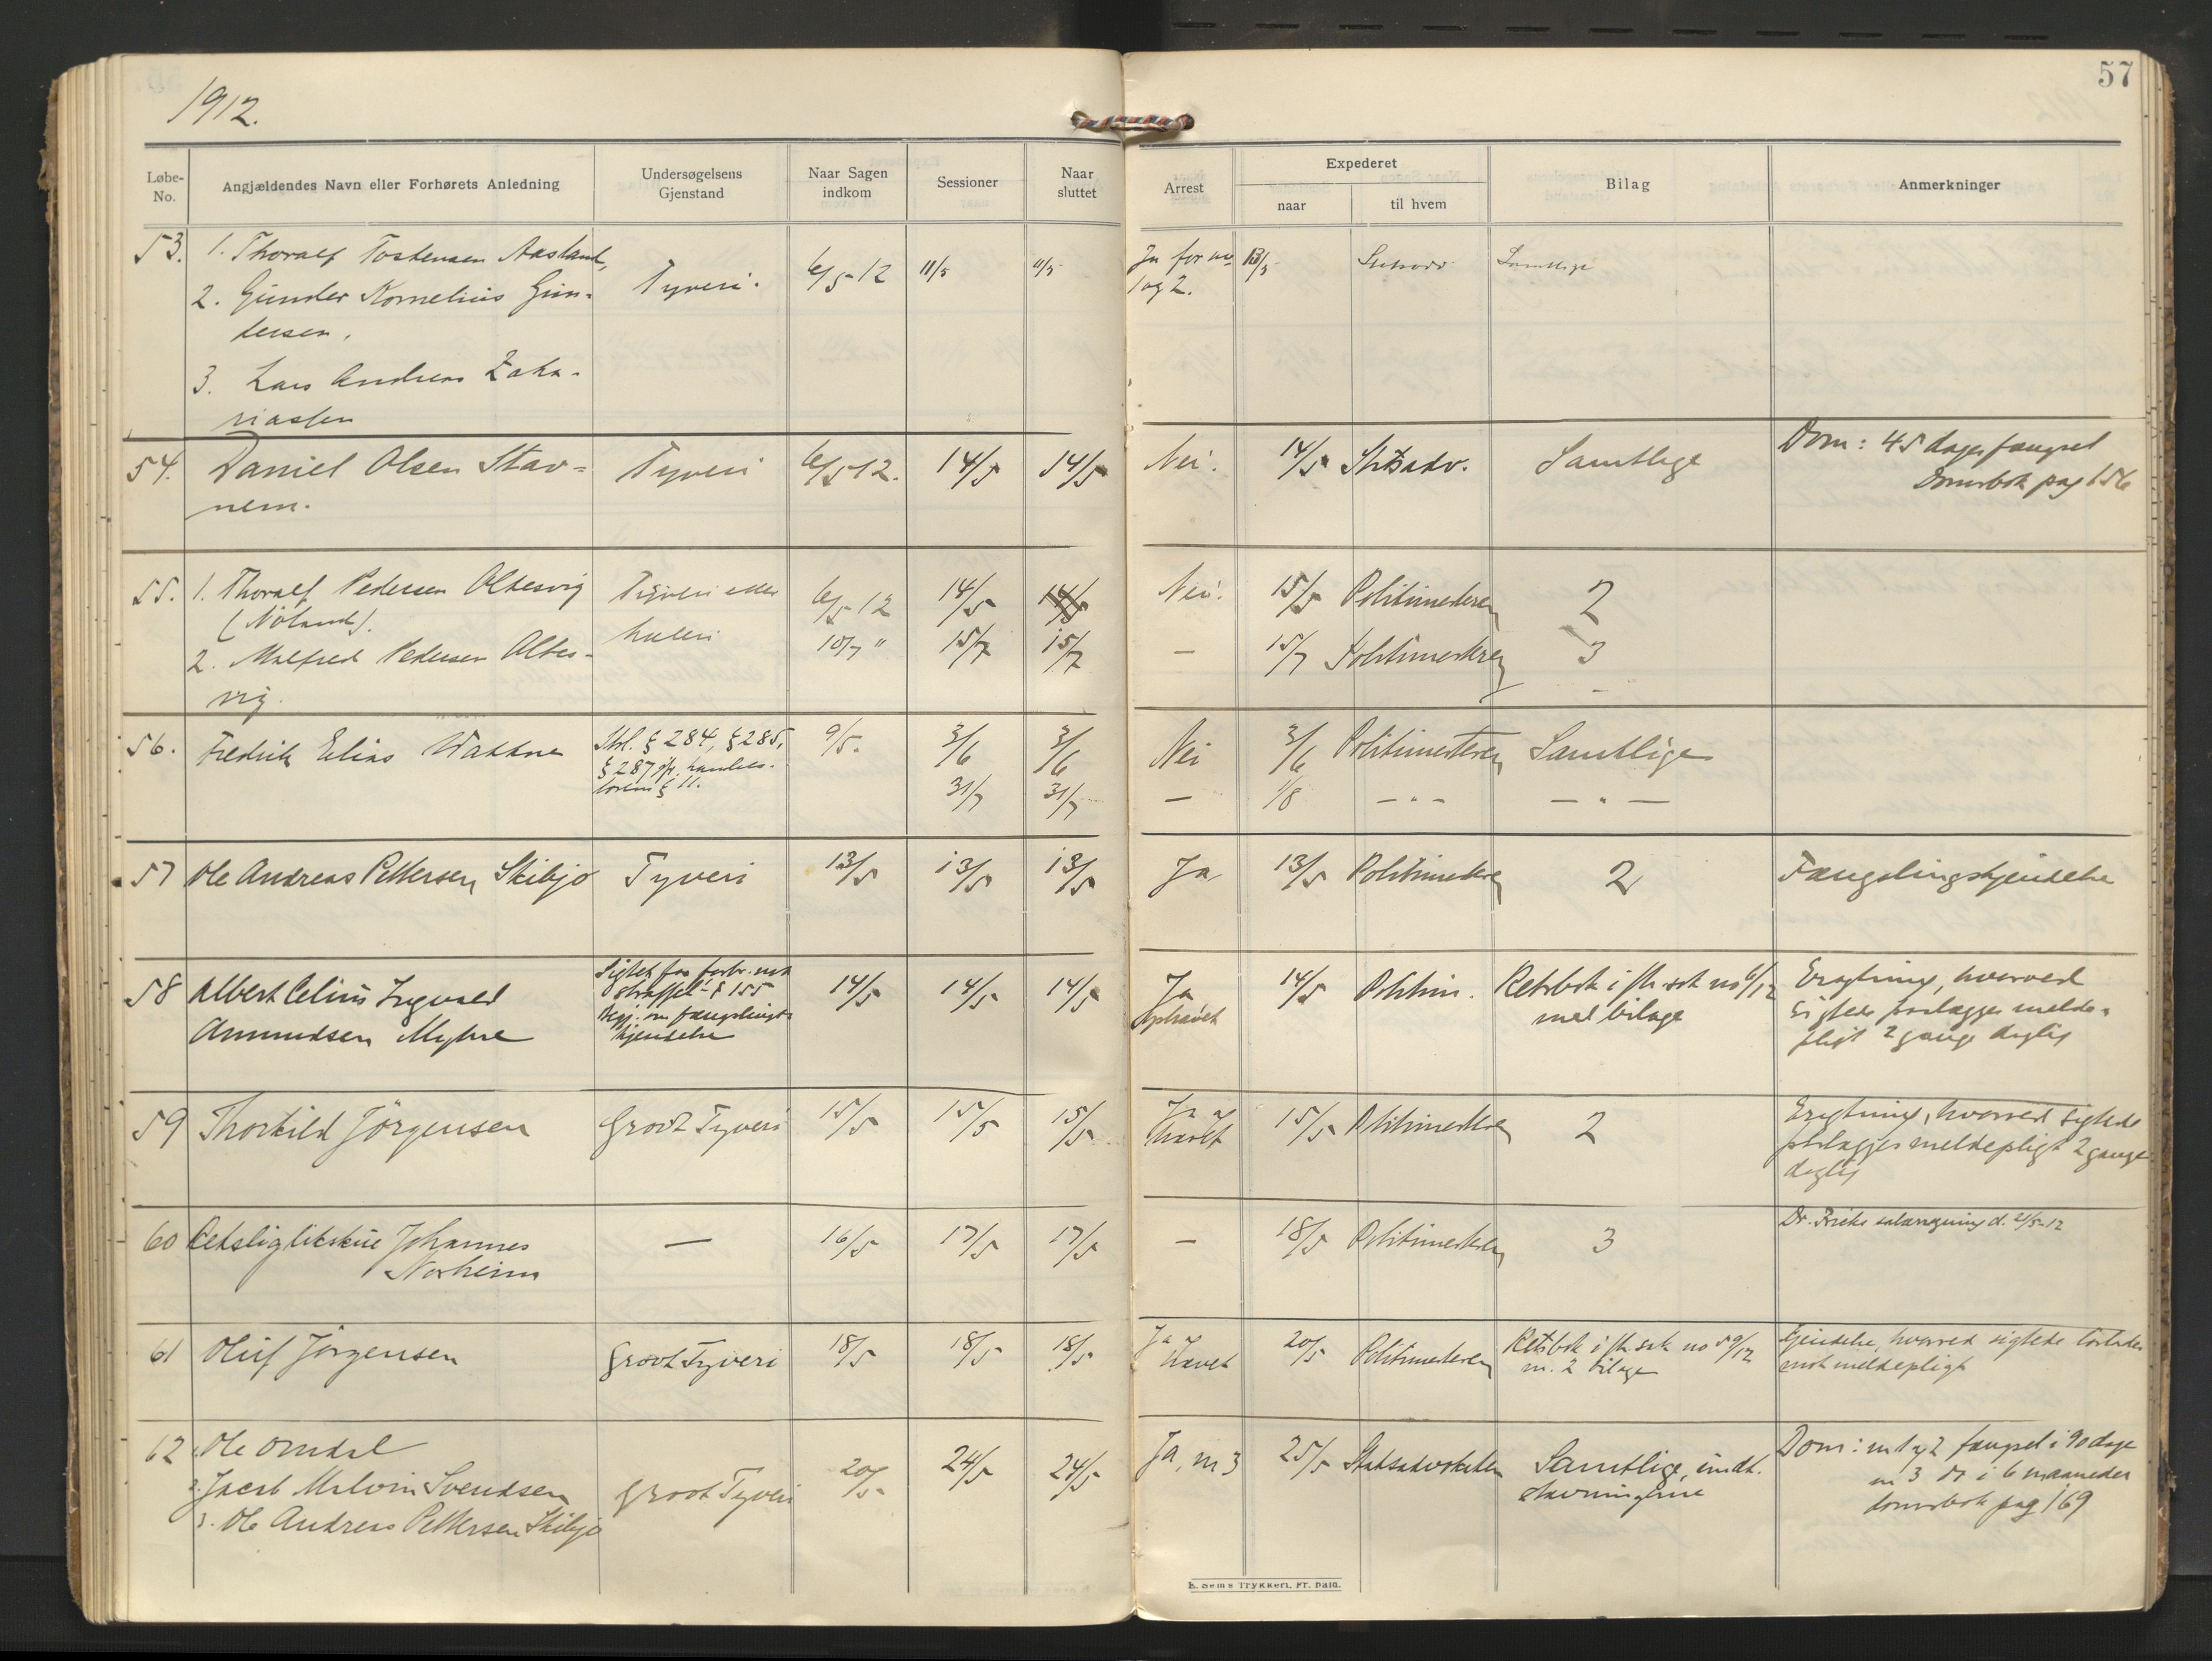 1912.
57
Løbe-No.
Angjældendes Navn eller Forhørets Anledning
Undersøgelsens Gjenstand
Naar Sagen indkom
Sessioner
Naar sluttet
Arrest
Expederet
naar
til hvem
Bilag
Anmerkninger
53. 1. Thoralf Tostensen Aasland, Tyveri. 6/5-12 11/5 11/5 Ja for no 13/5 Statsadv. Samtlige
2. Gunder Kornelius Gun- 1 og 2.
dersen.
3. Lars Andreas Zaka-
riassen
54. Daniel Olsen Stav= Tyveri 6/5 12. 14/5 14/5 Nei. 14/5 Statsadv. Samtlige Dom: 45 dages fængsel
nem. Domsbok pag 156
55. 1. Thoralf Pedersen Oltesvig Tyveri eller 6/5-12 14/5 14/5 Nei. 15/5 Politimesteren 2
(Nøland). hæleri
2. Malfred Pedersen Oltes- 10/7 " 15/7 15/7 — 15/7 Politimesteren 3
vig.
56. Fredrik Elias Watne Strl. § 284, § 285, 9/5. 3/6 3/6 Nei 3/6 Politimesteren Samtlige
§ 287 jfr. handels-
loven § 11. 31/7 31/7 — 1/8 — " — — " —
57 Ole Andreas Pettersen Skibjo Tyveri 13/5 13/5 13/5 Ja 13/5 Politimesteren 2 Fængslingskjendelse
58 Albert Celius Ingvald Sigtet for forbr. mot 14/5 14/5 14/5 Ja 14/5 Politim. Retsbok i str. sak no 6/12 Eragtning, hvorved
straffel. § 155
Amundsen Myhre Begj. om fængslings- ophævet med bilage sigtede paalægges melde-
kjendelse pligt 2 gange daglig
59 Thorkild Jörgensen Grovt Tyveri 15/5 15/5 15/5 Ja 15/5 Politimesteren 2 Eragtning, hvorved sigtede
hævet paalægges meldepligt 2 gange
daglig
60 Retslig likskue Johannes — 16/5 17/5 17/5 — 18/5 Politimesteren 3
Norheim
61 Oluf Jörgensen Grovt Tyveri 18/5 18/5 18/5 Ja 20/5 Politimesteren Retsbok i str. sak no 59/12 Kjendelse, hvorved sigtede löslades
hævet m. 2 bilage mot meldepligt
62 1. Ole Omdal Grovt Tyveri 20/5 24/5 24/5 Ja, no 3 25/5 Statsadvokaten Samtlige, undt. Dom: no 1 og 2 fængsel i 90 dage
2. Jacob Malvin Svendsen stævningerne no 3 do i 6 maaneder
3. Ole Andreas Pettersen Skibjo domsbok pag 169
E. Sem's Trykkeri, Fr. hald.